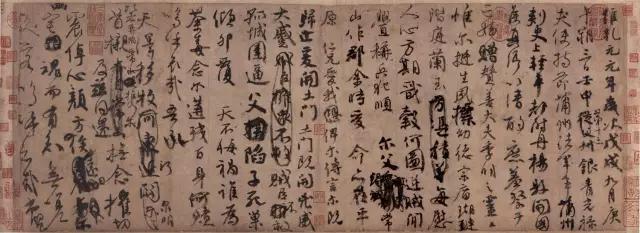 維乾元元年歲次戊戌九月庚
午朔三日壬申第十三叔銀青光祿
夫使持節蒲州諸軍事蒲州
刺史上輕車都尉丹楊縣開國
侯真卿以清酌庶羞祭于
亡姪贈贊善大夫季明之靈曰
惟爾挺生夙標幼德宗廟瑚璉
階庭蘭玉每慰
人心方期戩穀何圖逆賊閒
釁稱兵犯順爾父竭誠常
山作郡余時受命亦在平
原仁兄愛我俾爾傳言爾既
歸止爰開土門土門既開凶威
大蹙賊臣不救
孤城圍逼父陷子死巢
傾卵覆天不悔禍誰為
荼毒念爾遘殘百身何贖
嗚乎哀哉吾承
天澤移牧河關泉明
比者再陷常山攜爾
首櫬及茲同還撫念摧切
震悼心顏方俟
魂而有知無嗟
久客嗚呼哀哉尚饗